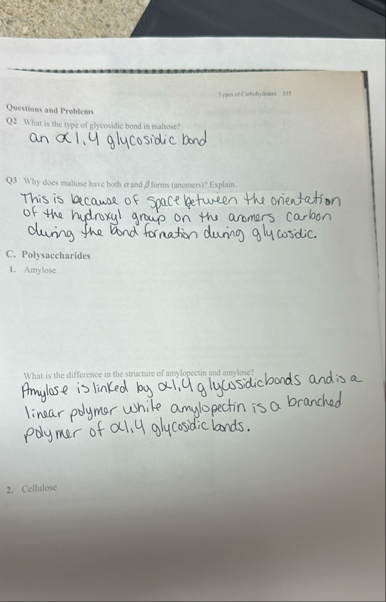 Types of Carbohydrates 333
Questions and Problems
Q2 What is the type of glycosidic bond in maltose?
an α 1,4 glycosidic bond
Q3 Why does maltose have both α and β forms (anomers)? Explain.
This is because of space between the orientation
of the hydroxyl group on the anomers carbon
during the bond formation during glycosdic.
C. Polysaccharides
1. Amylose
What is the difference in the structure of amylopectin and amylose?
Amylose is linked by α1,4 glycosidic bonds and is a
linear polymer while amylopectin is a branched
polymer of α1,4 glycosidic bands.
2. Cellulose